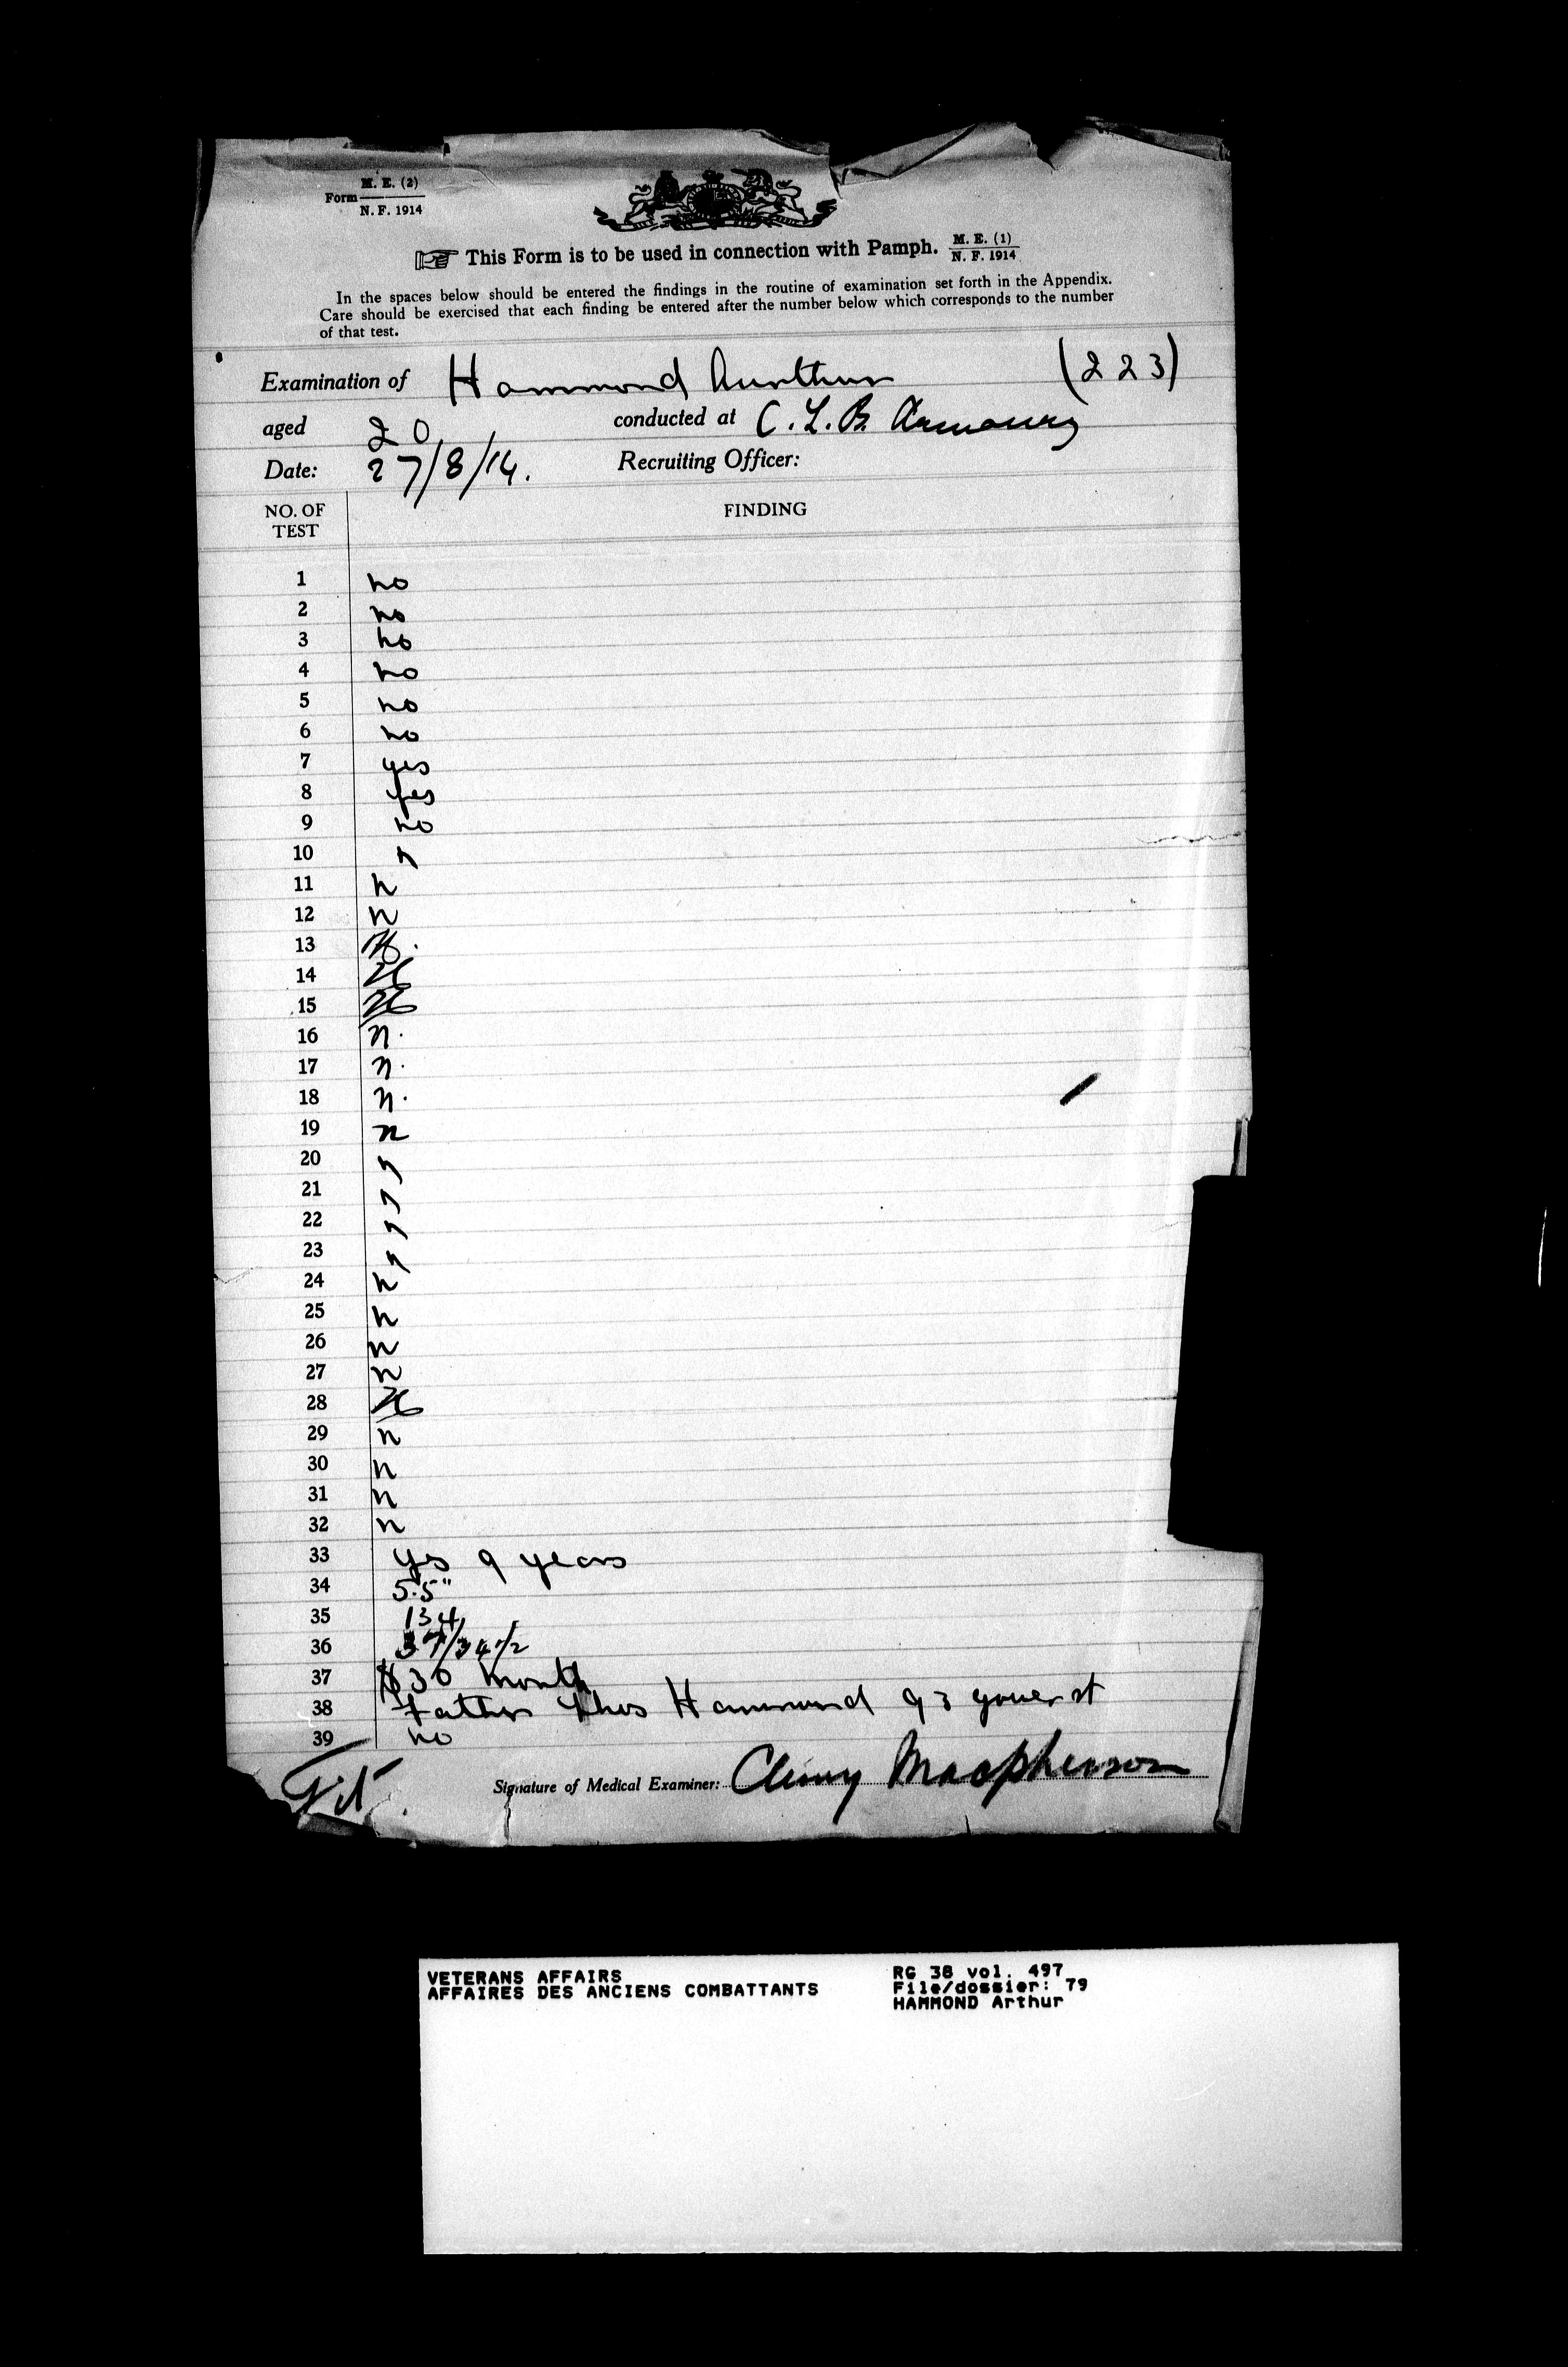 Form M. E. (2)
N. F. 1914
This Form is to be used in connection with Pamph. M. E. (1)
N. F. 1914
In the spaces below should be entered the findings in the routine of examination set forth in the Appendix.
Care should be exercised that each finding be entered after the number below which corresponds to the number
of that test.
Examination of Hammond Aurthur (223)
aged 20 conducted at C. L. B. Armoury
Date: 27/8/14. Recruiting Officer:
NO. OF TEST FINDING
1 no
2 no
3 no
4 no
5 no
6 no
7 yes
8 yes
9 no
10
11 n
12 n
13
14
15
16 n.
17 n.
18 n.
19 n
20
21
22
23
24 n
25 n
26 n
27 n
28
29 n
30 n
31 n
32 n
33 yes 9 years
34 5.5"
35 134
36 37/34 1/2
37 $30 month
38 Father Thos Hammond 93 Gower st
39 no
Fit
Signature of Medical Examiner: Cluny Macpherson
VETERANS AFFAIRS RG 38 vol. 497
AFFAIRES DES ANCIENS COMBATTANTS File/dossier: 79
HAMMOND Arthur